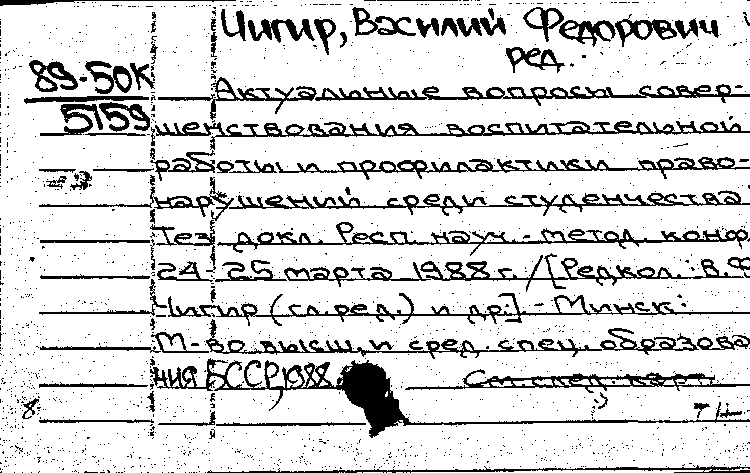 Чигир, Василий Федорович
ред.
89-50К
5159
Актуальные вопросы совер-
шенствования воспитательной
работы и профилактики право-
нарушений среди студенчества
Тез. докл. Респ. науч.-метод. конф.
24-25 марта 1988 г. / [Редкол.: В.Ф.
Чигир (гл. ред.) и др.]. - Минск:
М-во высш. и сред. спец. образова
ния БССР, 1988.
См. след. карт.
8